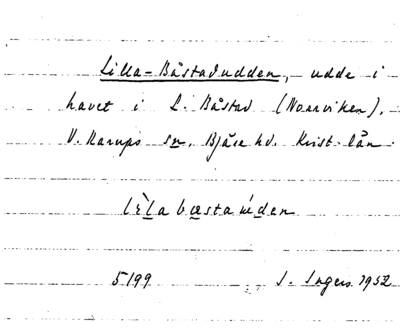 Lilla-Båstadudden, udde i
havet i L. Båstad (Norrviken).
V. Karups sn. Bjäre hd. Krist. län
lìla bæstaúden
5199 I. Ingers 1932